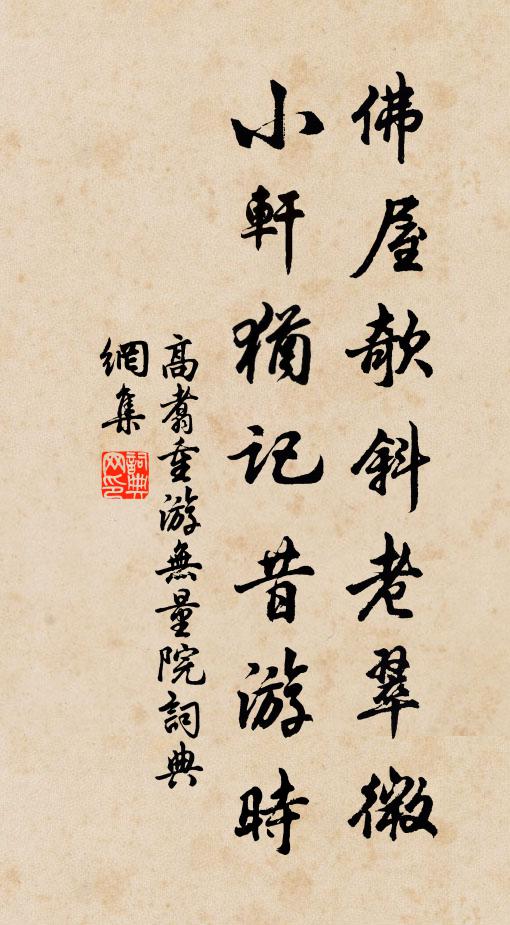 佛屋欹斜老翠微
小軒猶記昔游時
高翥重游無量院詞典
網集
詞典網印